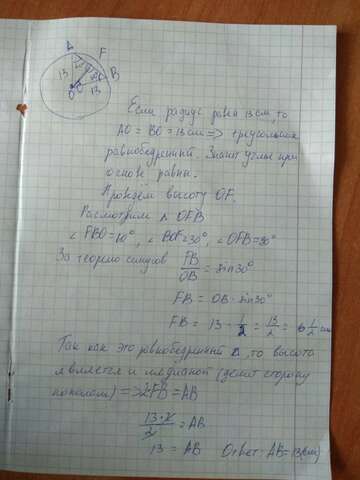 A F
B
13
O 13
Если радиус равен 13 см, то
AO = BO = 13 см => треугольник
равнобедренный. Значит углы при
основе равны.
Проведём высоту OF.
Расмотрим Δ OFB
∠ FBO = 60°, ∠ BOF = 30°, ∠ OFB = 90°
За теормо синусов FB/OB = sin 30°
FB = OB · sin 30°
FB = 13 · 1/2 = 13/2 = 6 1/2 см
Так как это равнобедренный Δ, то высота
является и медианой (делит сторону
пополам) => 2FB = AB
13·2/2 = AB
13 = AB Ответ: AB = 13 (см)